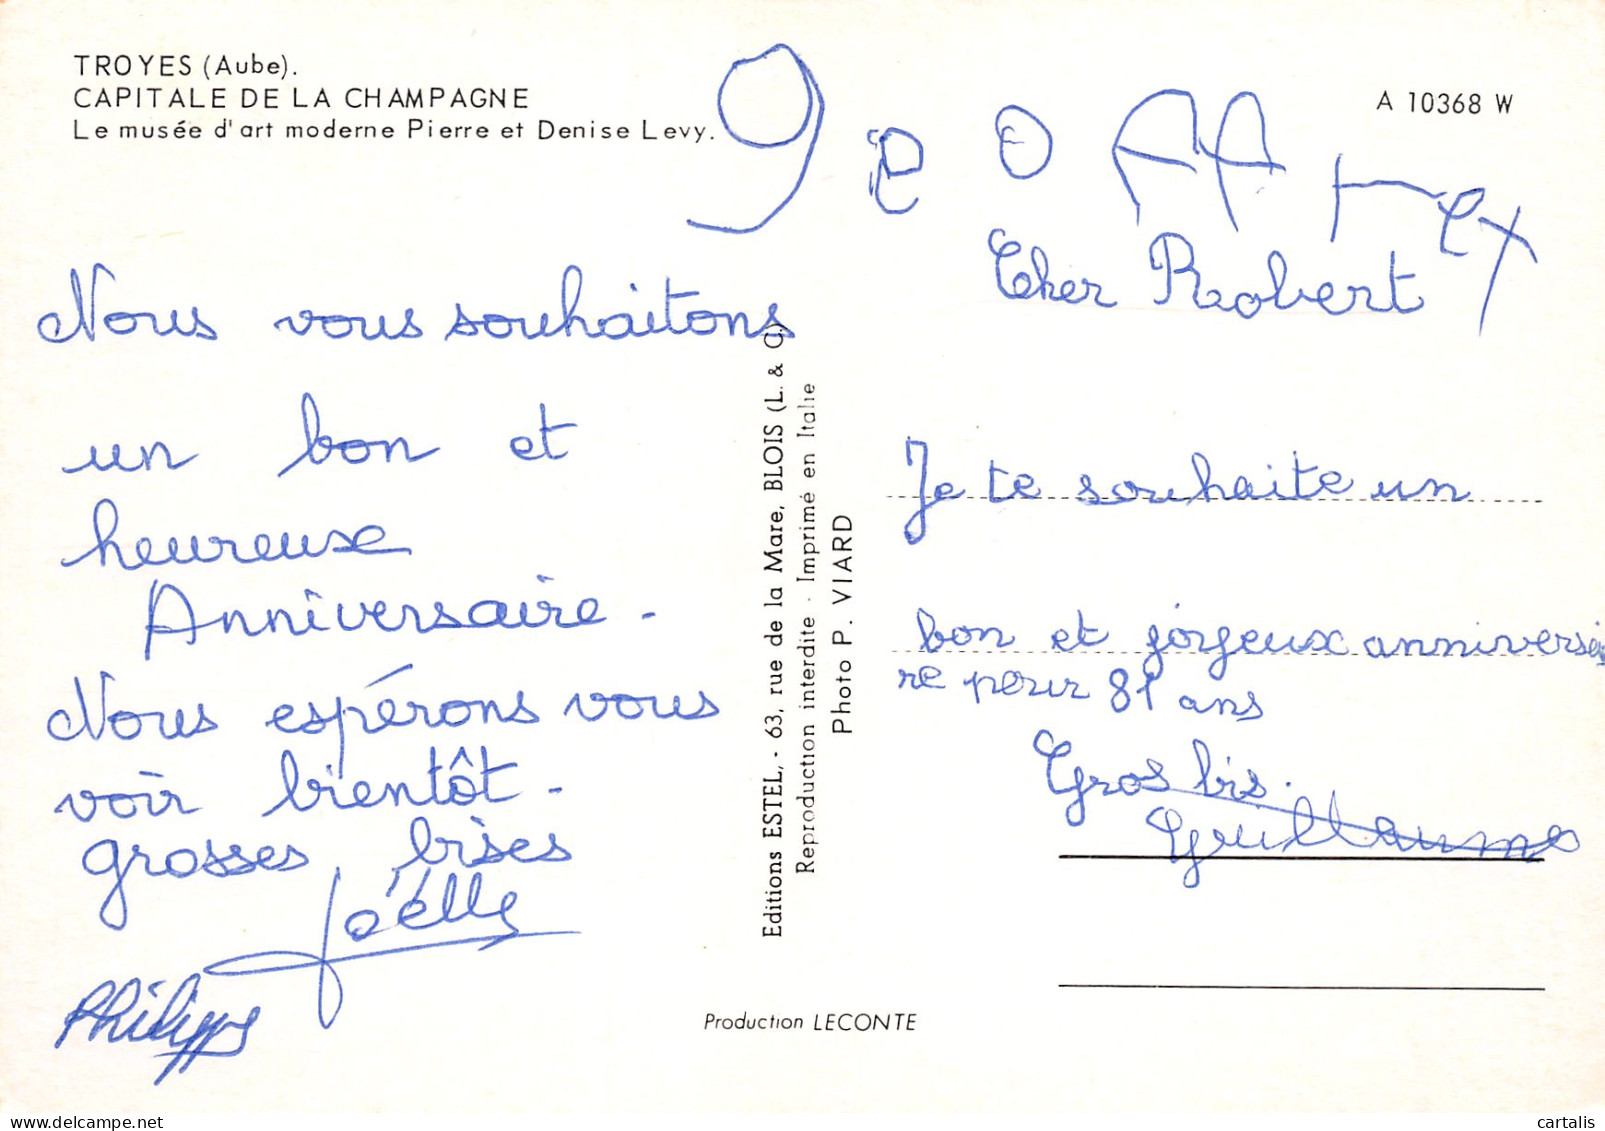 TROYES (Aube).
CAPITALE DE LA CHAMPAGNE
Le musée d'art moderne Pierre et Denise Levy.
A 10368 W
Nous vous souhaitons
un bon et
heureuse
Anniversaire -
Nous espérons vous
voir bientôt -
grosses bises
Joëlle
Philippe
Editions ESTEL, - 63, rue de la Mare, BLOIS (L. & C.)
Reproduction interdite - Imprimé en Italie
Photo P. VIARD
Production LECONTE
geoffrey
Cher Robert
Je te souhaite un
bon et joyeux anniversai
re pour 81 ans
Gros bis.
Guillaume
cartalis
delcampe.net